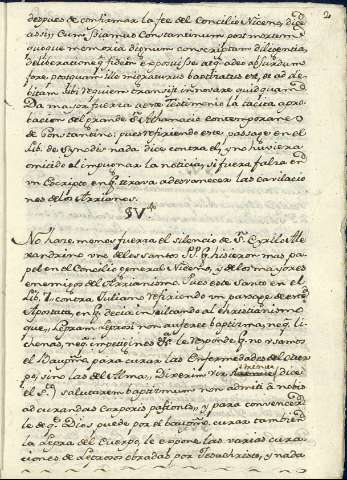 2
despues de confirmar la fee del Concilio Niceno, dice
assi; Cum piissimus Constantinum post mortem
quoque memoria dignum conscriptam diligentia,
deliberatione q fidem exposuisset atq adeo absurdum
fore, postquam ille migrat baptisatus est, et ad de
bitam sibi requiem transiit innovare quidquam. Da
Da maior fuerza a este Testimonio la tacita apro
bacion del grande S. Athanacio contemporaneo
de Constantino; pues refiriendo este passage en el
Lib. de Synodis nada dice contra el; y no huviera
omitido el impugnar la noticia, si fuera falsa en
un Escripto en q. tirava a desvanecer las cavilacio
nes de los Arrianos.
§ V.
No hace menos fuerza el silencio de S. Cyrilo Ale
xandrino uno de los santos PP. q. hisieron mas pa
pel en el Concilio general Niceno, y de los mayores
enemigos del Arrianismo. Pues este Santo en el
Lib. 7. contra Juliano refiriendo un passage de este
Apostata, en q. decia insultando al Christianismo
que, Lepram Leprosi non aufert baptisma, neq. li
chenas, neq. impetigines &c. le responde q. no usamos
el Baupmo. para curar las Enfermedades del Cuer
po, sino las del Alma,, Dixerim vir (dice
el S.) salutarem baptismum non admiti a nobis
ad curandas corporis passiones,, y para convencer
le de q. Dios puede por el baupmo. curar tambien
la lepra del Cuerpo, le opone las varias cura
ciones de leprosos obradas por Jesuchristo, y nada